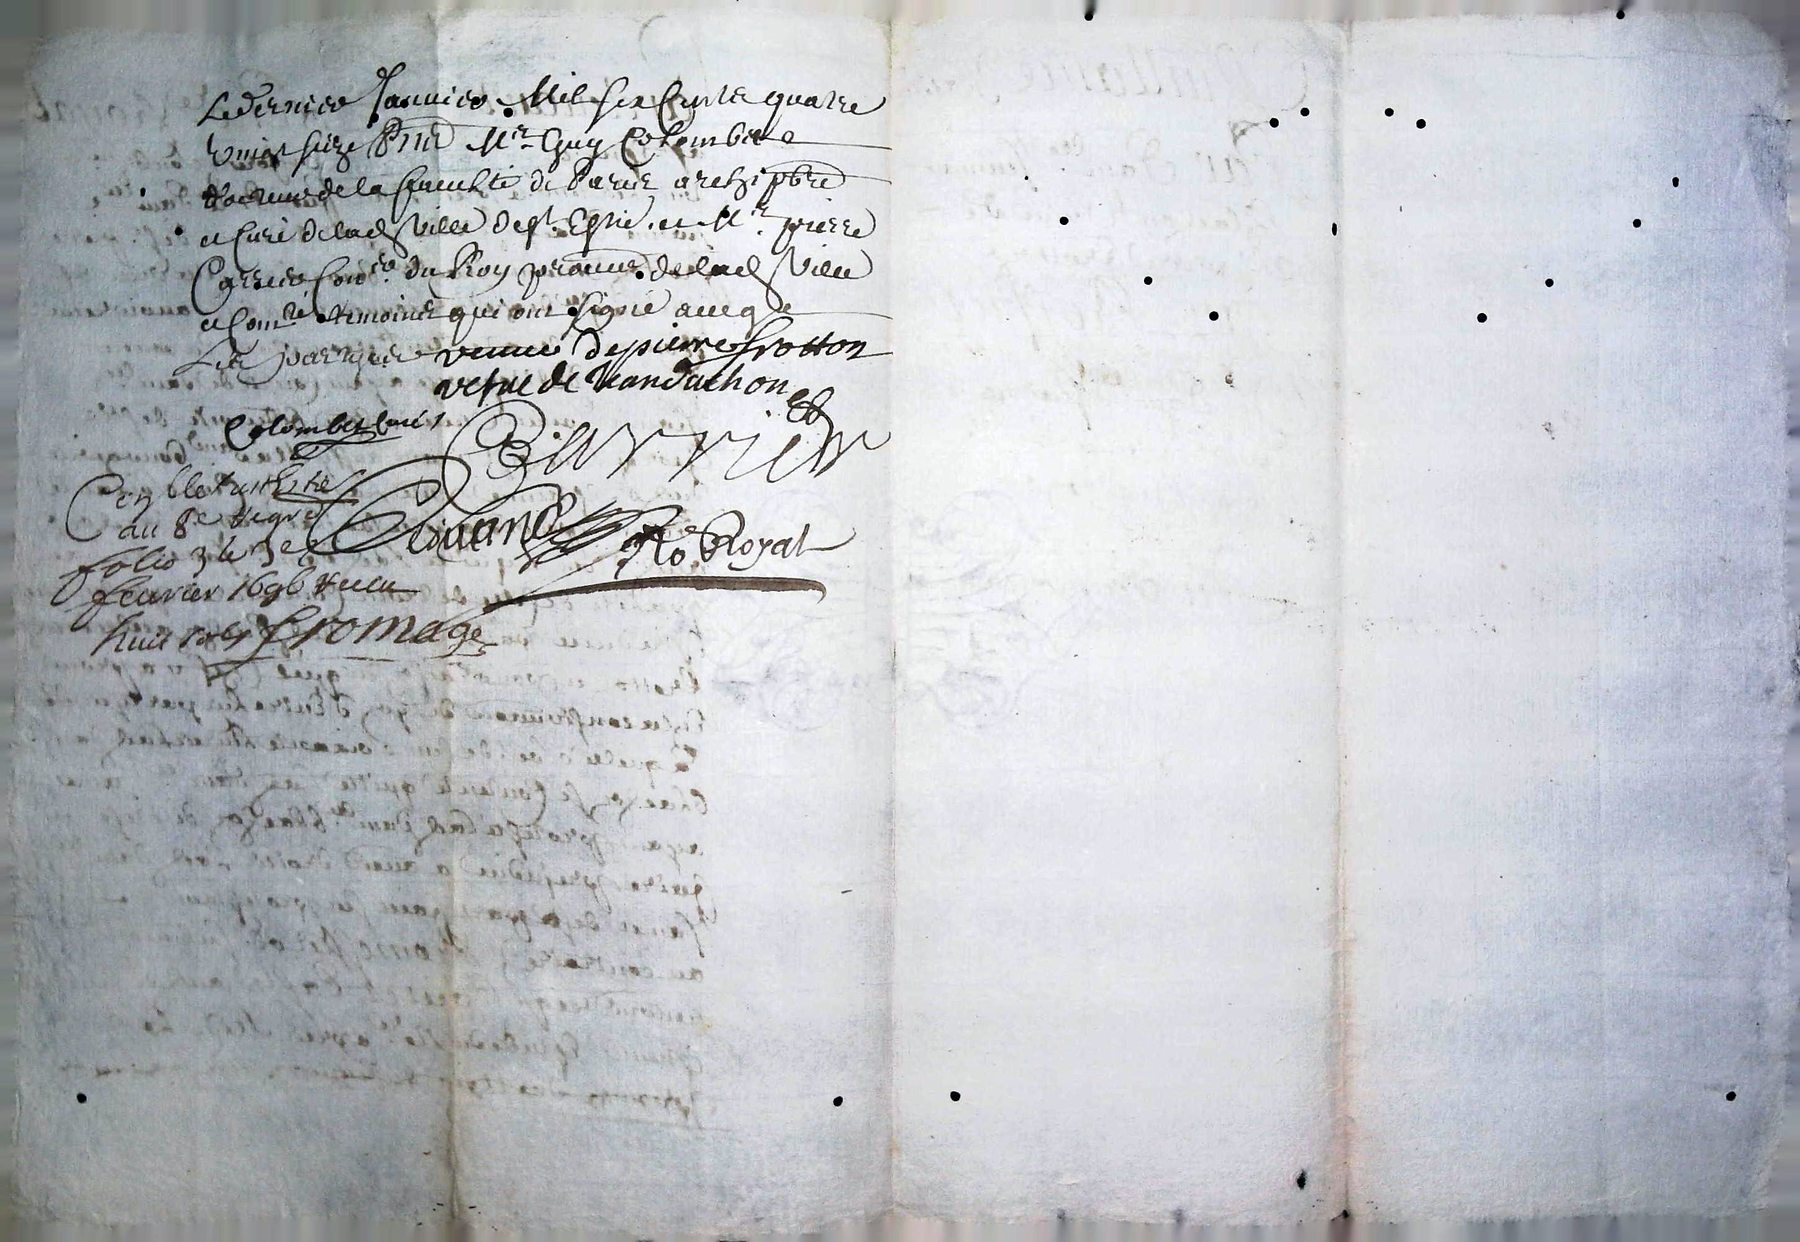 Le dernier Janvier Mil six Cents quatre
vingt seize Pnts Mre Guy Colombet
docteur de la faculté de Paris archipbre
et Curé de lad Ville de St Estne et Mre pierre
Carrier Conser du Roy procureur de lad Ville
et temoins qui ont signé avecq
Les parties venue de pierre frotton
vefve de Jean
Colombet Curé
Carrier
Controllé
au 8e Regre
folio 3 le 3e
fevrier 1696 Receu
huit sols fromage
No Royal